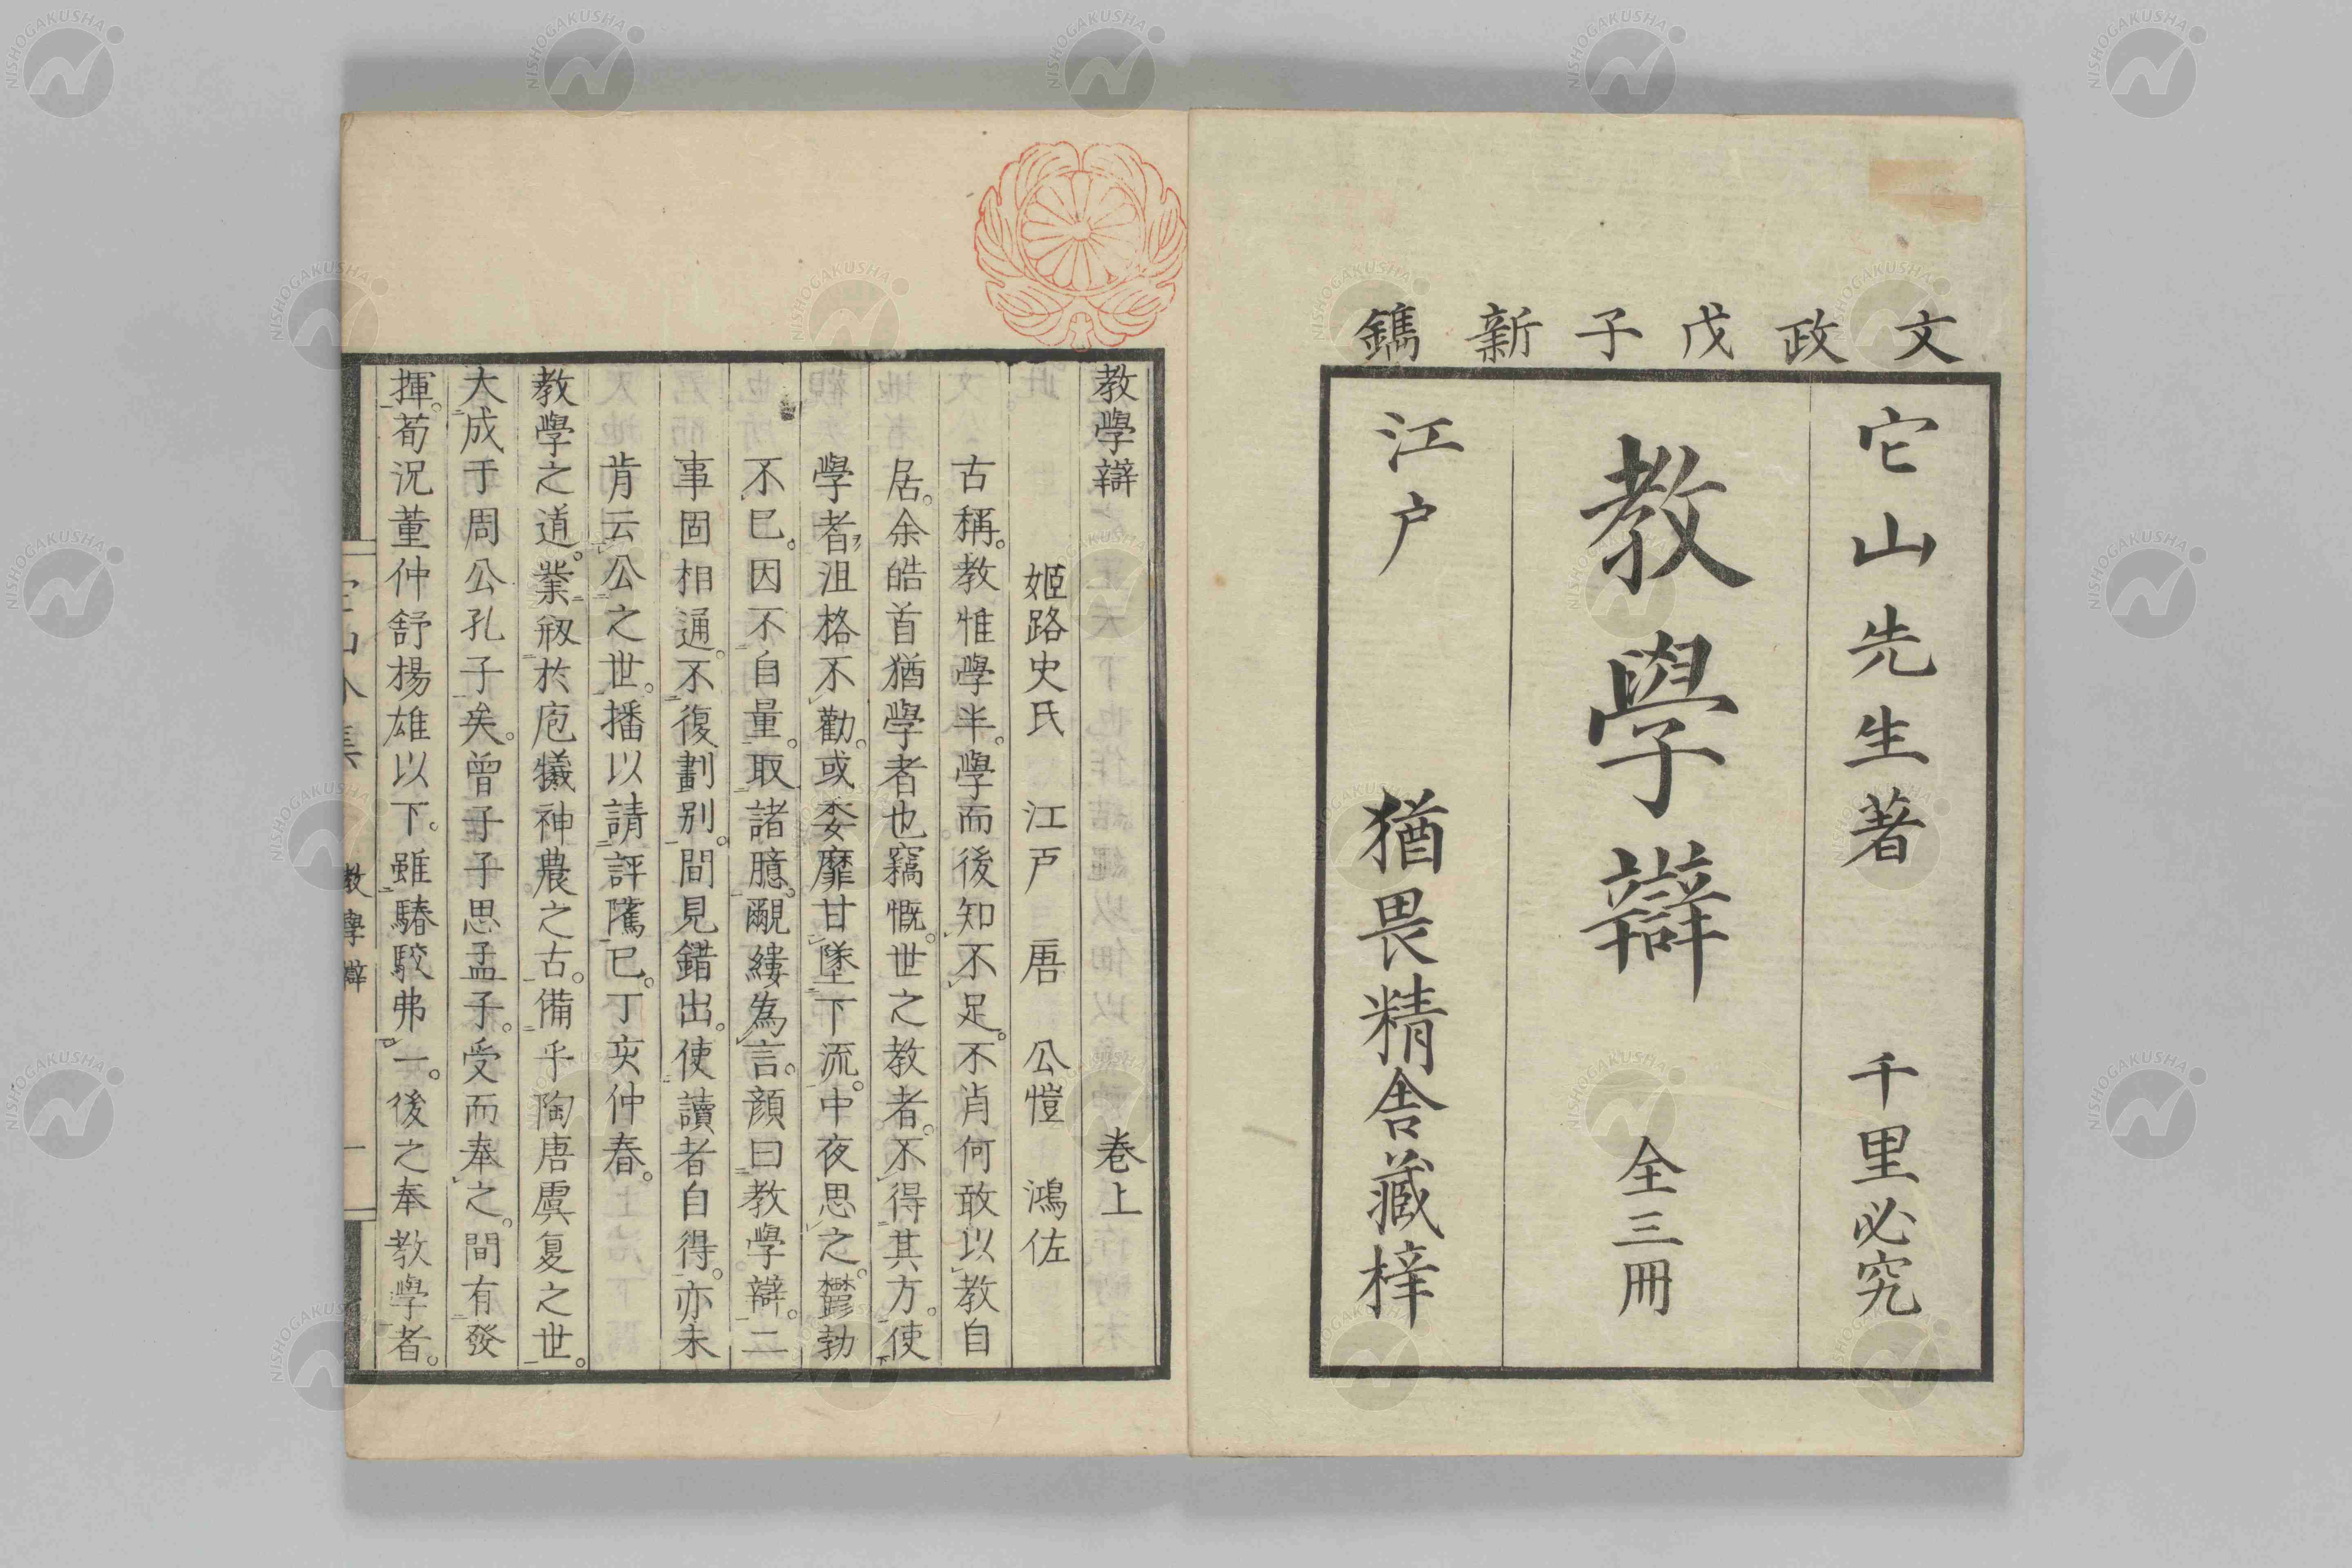 文政戊子新鐫
它山先生著 千里必究
教學辯 全三冊
江戸 猶畏精舎藏梓
教學辯 卷上
姬路史氏 江戸 唐 公愷 鴻佐
古稱。教惟學半。學而後知不足。不肖何敢以教自
居。余皓首猶學者也竊慨。世之教者。不得其方。使
學者沮格不勸。或委靡甘墜下流。中夜思之。鬱勃
不已。因不自量。取諸臆。覼縷為言。顏曰教學辯。二
事固相通。不復劃別。間見錯出。使讀者自得。亦未
肯云公之世。播以請評隲已。丁亥仲春。
教學之道。業剏於庖犧神農之古。備乎陶唐虞夏之世。
大成于周公孔子矣。曾子子思孟子。受而奉之。間有發
揮。荀況董仲舒楊雄以下。雖駁弗一。後之奉教學者。
教學辯 一
NISHOGAKUSHA